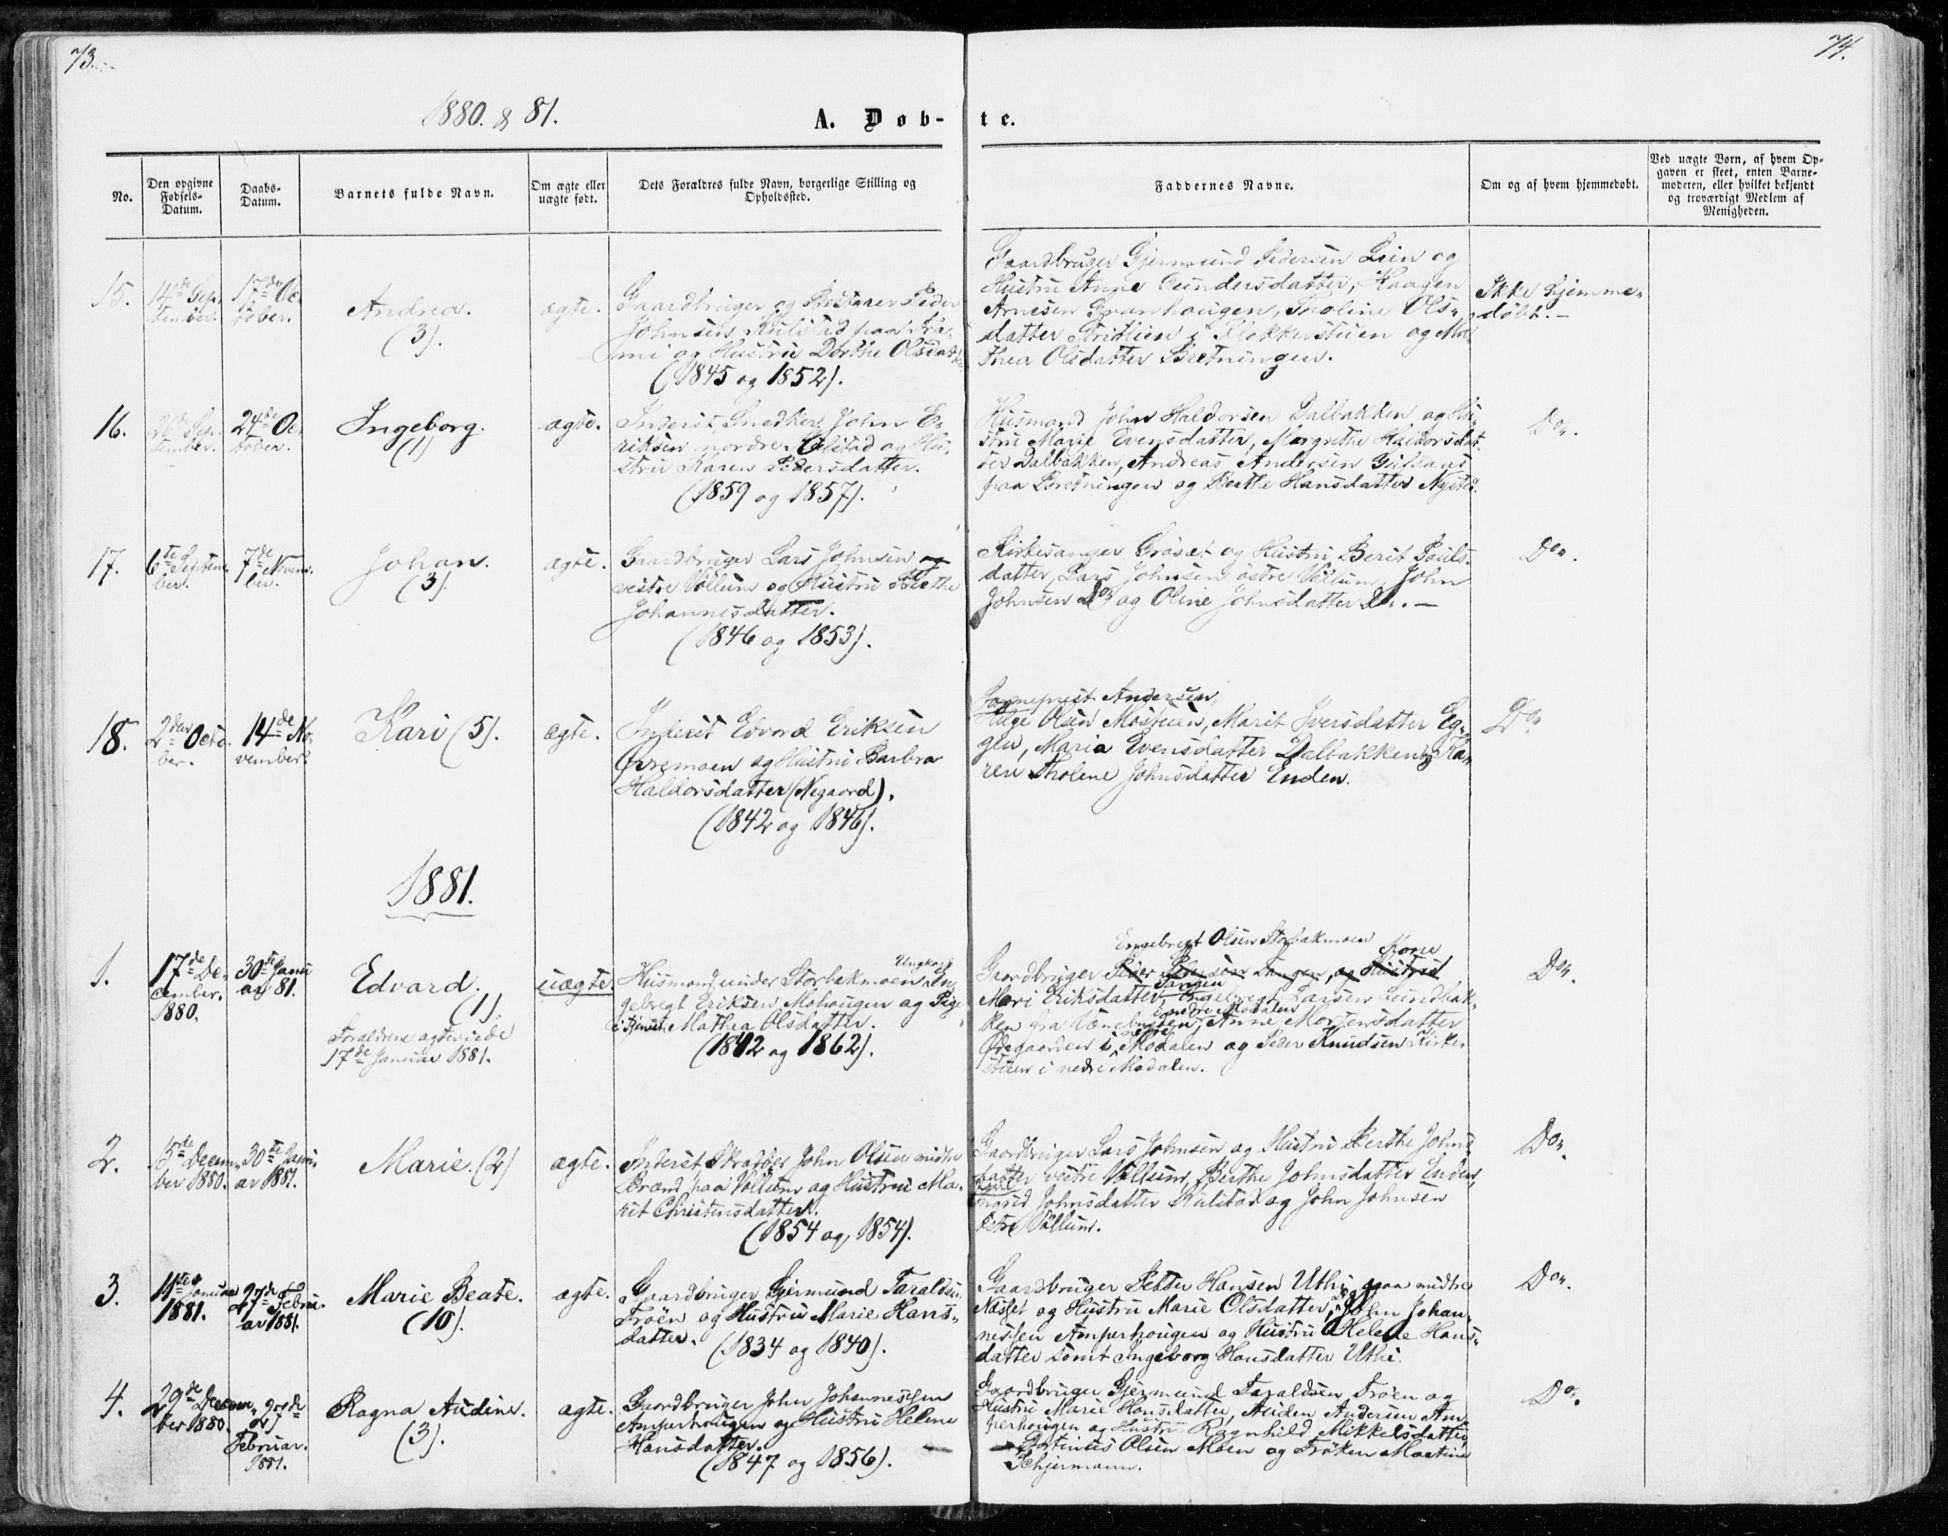 73.
74.
1880. & 81.
A. Døb-
te.
No.
Den opgivne
Fødsels-
Datum.
Daabs-
Datum.
Barnets fulde Navn.
Om ægte eller
uægte født.
Dets Forældres fulde Navn, borgerlige Stilling og
Opholdssted.
Faddernes Navne.
Om og af hvem hjemmedøbt.
Ved uægte Børn, af hvem Op-
gaven er skeet, enten Barne-
moderen, eller hvilket bekjendt
og troværdigt Medlem af
Menigheden.
15.
14de Sep-
tember.
17de Oc-
tober.
Andrea.
(3).
ægte.
Gaardbruger og Peder
Johnsen Kulstad paa
og Hustru Dorthe Olsdat
(1845 og 1852).
Gaardbruger Gjermund Pedersen Lien og
Hustru Anne Gundersdatter, Haagen
Arnesen Granhaugen, Tholine Ols-
datter i Klokkerstuen og Ma
thea Olsdatter Bretningen.
Ikke hjemme-
døbt. –
16.
Sep-
tember.
24de Oc-
tober.
Ingeborg.
(1)
ægte.
Inderst, Snedker John E-
riksen nordre Ulstad og Hu-
stru Karen Pedersdatter.
(1859 og 1857).
Husmand John Haldorsen Dalbakken og Hu-
stru Marie Evensdatter, Margrethe Haldorsdat
ter Dalbakken, Andreas Andersen
paa Bretningen og Berthe Hansdatter
Do.
17.
6te Septem
ber.
7de Novem
ber.
Johan.
(3).
ægte.
Gaardbruger Lars Johnsen
vestre Vollum og Hustru Berthe
Johannesdatter.
(1846 og 1853).
Kirkesanger Grøsæt og Hustru Berit Pauls-
datter, Lars Johnsen østre Vollum, John
Johnsen Do og Oline Johnsdatter Do. –
Do.
18.
2den Octo
ber.
14de No-
vember.
Kari (5).
ægte.
Inderst Edvard Eriksen
Øvremoen og Hustru Barbra
Haldorsdatter (Negaard).
(1842 og 1846).
Sogneprest Andersen,
Helge Olsen Mostuen, Marit Iversdatter Eg-
gen, Maria Evensdatter Dalbakken, Ka-
ren Tholene Johnsdatter Enden.
Do.
1881.
1.
17de De-
cember.
1880.
30te Janu
ar 81.
Edvard.
(1).
Forældrene ægteviede
17de Januar 1881.
uægte.
Ungkarl
Husmand under Storbakmoen En-
gebregt Eriksen Mohaugen og Pige
i Tjenst Mathea Olsdatter.
(1842 og 1862).
Engebregt Olsen Storbakmoen
Gaardbruger Peder Langen, og Hustru Kone
Mari Eriksdatter, Engebregt Larsen Lundbak-
ken fra Anne Mortensdatter
Ødegaarden i Modalen og Peder Knudsen Kirke-
stuen i nedre Modalen.
Do.
2.
15de Decem
ber 1880.
30te Janu-
ar 1881.
Marie. (2)
ægte.
Inderst Skrædder John Olsen midtre
Brænd paa Vollum og Hustru Ma-
rit Christensdatter.
(1854 og 1854).
Gaardbruger Lars Johnsen og Hustru Berthe Johns
datter vestre Vollum, Berthe Johnsdatter Enden,
Marit Johnsdatter Kulstad og John Johnsen
østre Vollum.
Do.
3.
11te Januar
1881.
27de Febru-
ar 1881.
Marie Beate.
(10).
ægte.
Gaardbruger Gjermund Taraldsen
Trøen og Hustru Marie Hans-
datter.
(1834 og 1840).
Gaardbruger Petter Hansen Uthi paa midtre
Næset og Hustru Marie Olsdatter, John Johan-
nessen Amperhaugen og Hustru Helene Hans-
datter samt Ingeborg Hansdatter Uthi.
Do.
4.
29de Decem
ber 1880.
27de
Februar.
1881.
Ragna Audine.
(3).
ægte.
Gaardbruger John Johannessen
Amperhaugen og Hustru Helene
Hansdatter.
(1847 og 1856).
Gaardbruger Gjermund Taraldsen Trøen og
Hustru Marie Hansdatter, Auden Andersen Am-
perhaugen og Hustru Ragnhild Mikkelsdatter,
Olsen Moen og Frøken Martine
Schjermann.
Do.